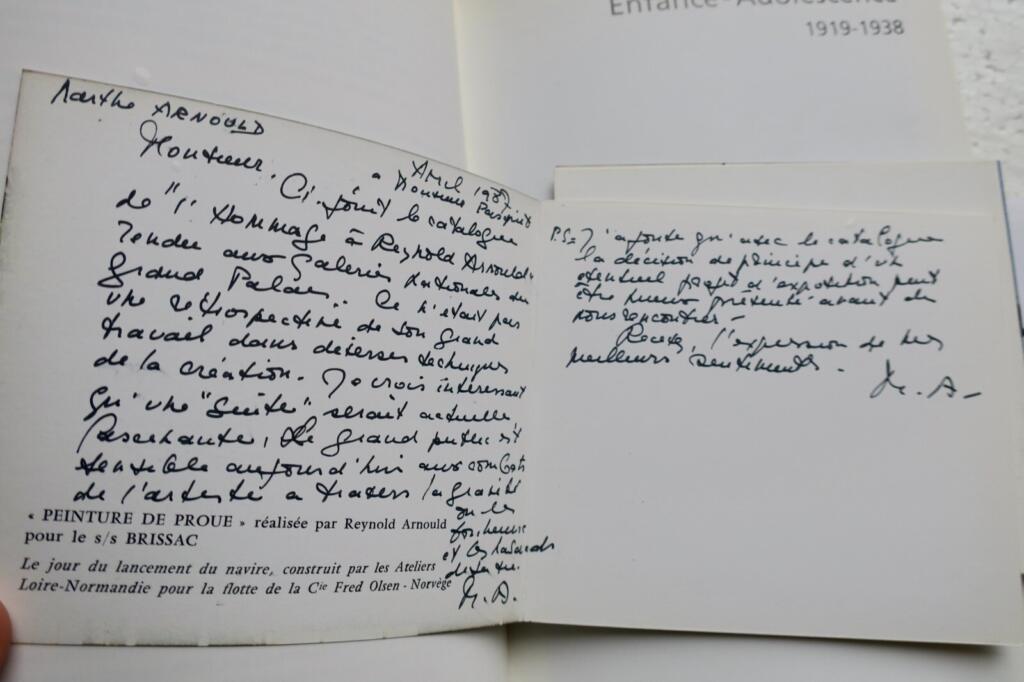 Enfance-Adolescence
1919-1938
Marthe ARNOULD
Avril 198
à Monsieur
Monsieur,
Ci-joint le catalogue
de "l'Hommage à Reynold Arnould"
rendu aux Galeries Nationales du
Grand Palais. Ce n'était pas
une rétrospective de son grand
travail dans diverses techniques
de la création. Je crois intéressant
qu'une "Suite" serait actuelle,
attachante, le grand public est
sensible aujourd'hui aux combats
de l'artiste à travers la gravité
ou les
bonheurs
et les hasards
M. A.
« PEINTURE DE PROUE » réalisée par Reynold Arnould
pour le s/s BRISSAC
Le jour du lancement du navire, construit par les Ateliers
Loire-Normandie pour la flotte de la Cie Fred Olsen - Norvège
P.S. J'ajoute qu'avec le catalogue
la décision de principe d'un
éventuel projet d'exposition peut
être mieux présenté avant de
nous rencontrer -
Recevez, l'expression de mes
meilleurs sentiments.
M. A-